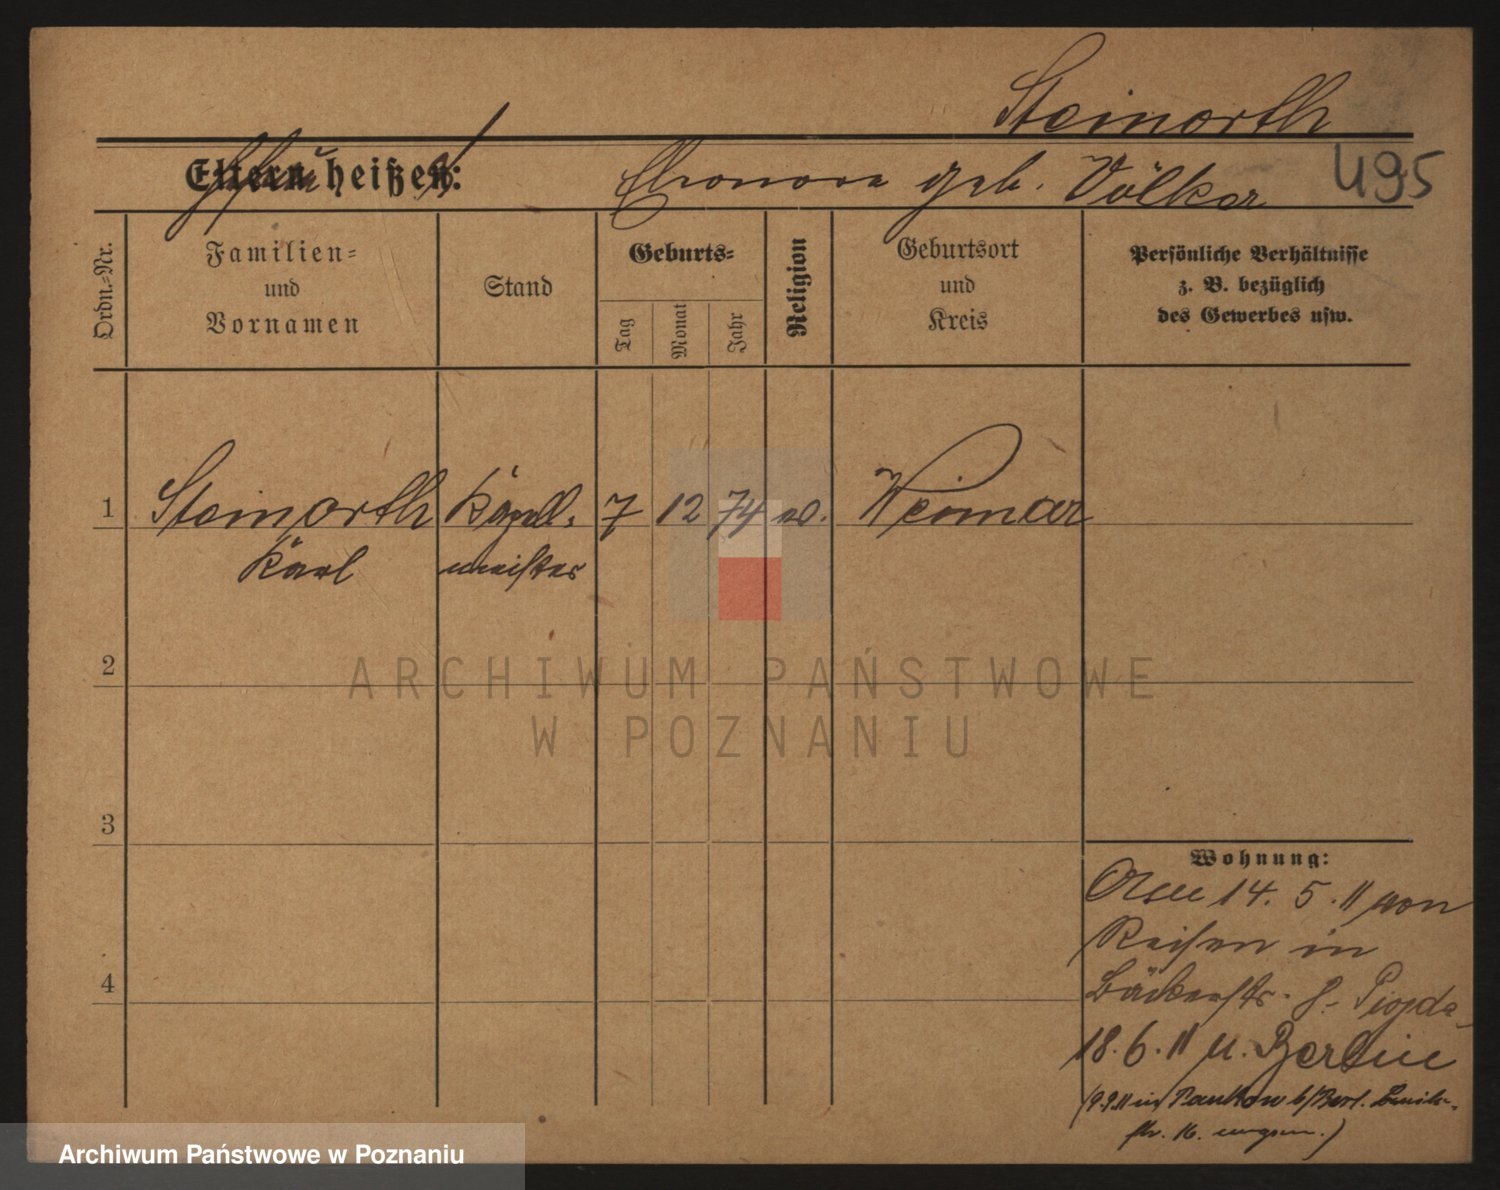 Steinorth
Eltern heißen: Eleonore geb. Völker 495
Ordn.-Nr.
Familien-
und
Vornamen
Stand
Geburts-
Tag
Monat
Jahr
Religion
Geburtsort
und
Kreis
Persönliche Verhältnisse
z. B. bezüglich
des Gewerbes usw.
1 Steinorth Kapell- 7 12 74 ev. Weimar
Karl meister
2
3
4
Wohnung:
14. 5. 11 von
Reisen in
Bäckerstr. 8.
18. 6. 11 n. Berlin
(9.9.11 in Pankow b/Berl.
str. 16. umgem.)
ARCHIWUM PAŃSTWOWE
W POZNANIU
Archiwum Państwowe w Poznaniu